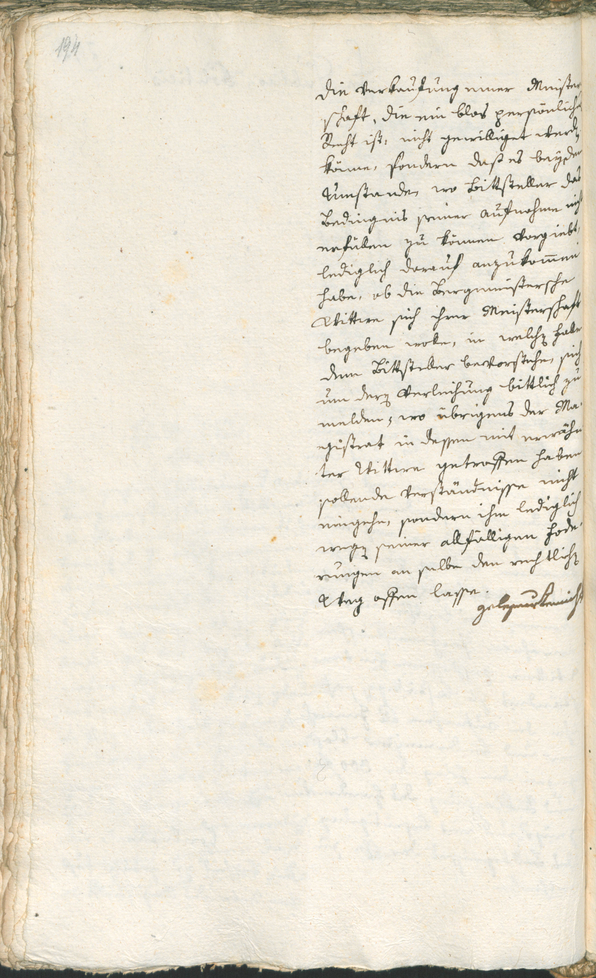 194
die Verkaufung einer Meister
schaft, die ein blos persönliches
Recht ist, nicht gewilliget werden
könne, sondern daß es bey den
Umstande, wo Bittsteller das
Bedingnis seiner Aufnahme nicht
erfüllen zu können vorgiebt,
lediglich darauf anzukommen
habe, ob die Bergmeistersche
Wittwe sich ihrer Meisterschaft
begeben wolle, in welchem Falle
dem Bittsteller bevorstehe, sich
um derey Verleihung bittlich zu
melden; wo übrigens der Ma-
gistrat in dessen mit erwähn
ter Wittwe getroffen haben
sollende Verständnisse nicht
eingehe, sondern ihm lediglich
wegen seiner allfälligen Forde-
rungen an selbe den rechtlichen
Weg offen lasse.